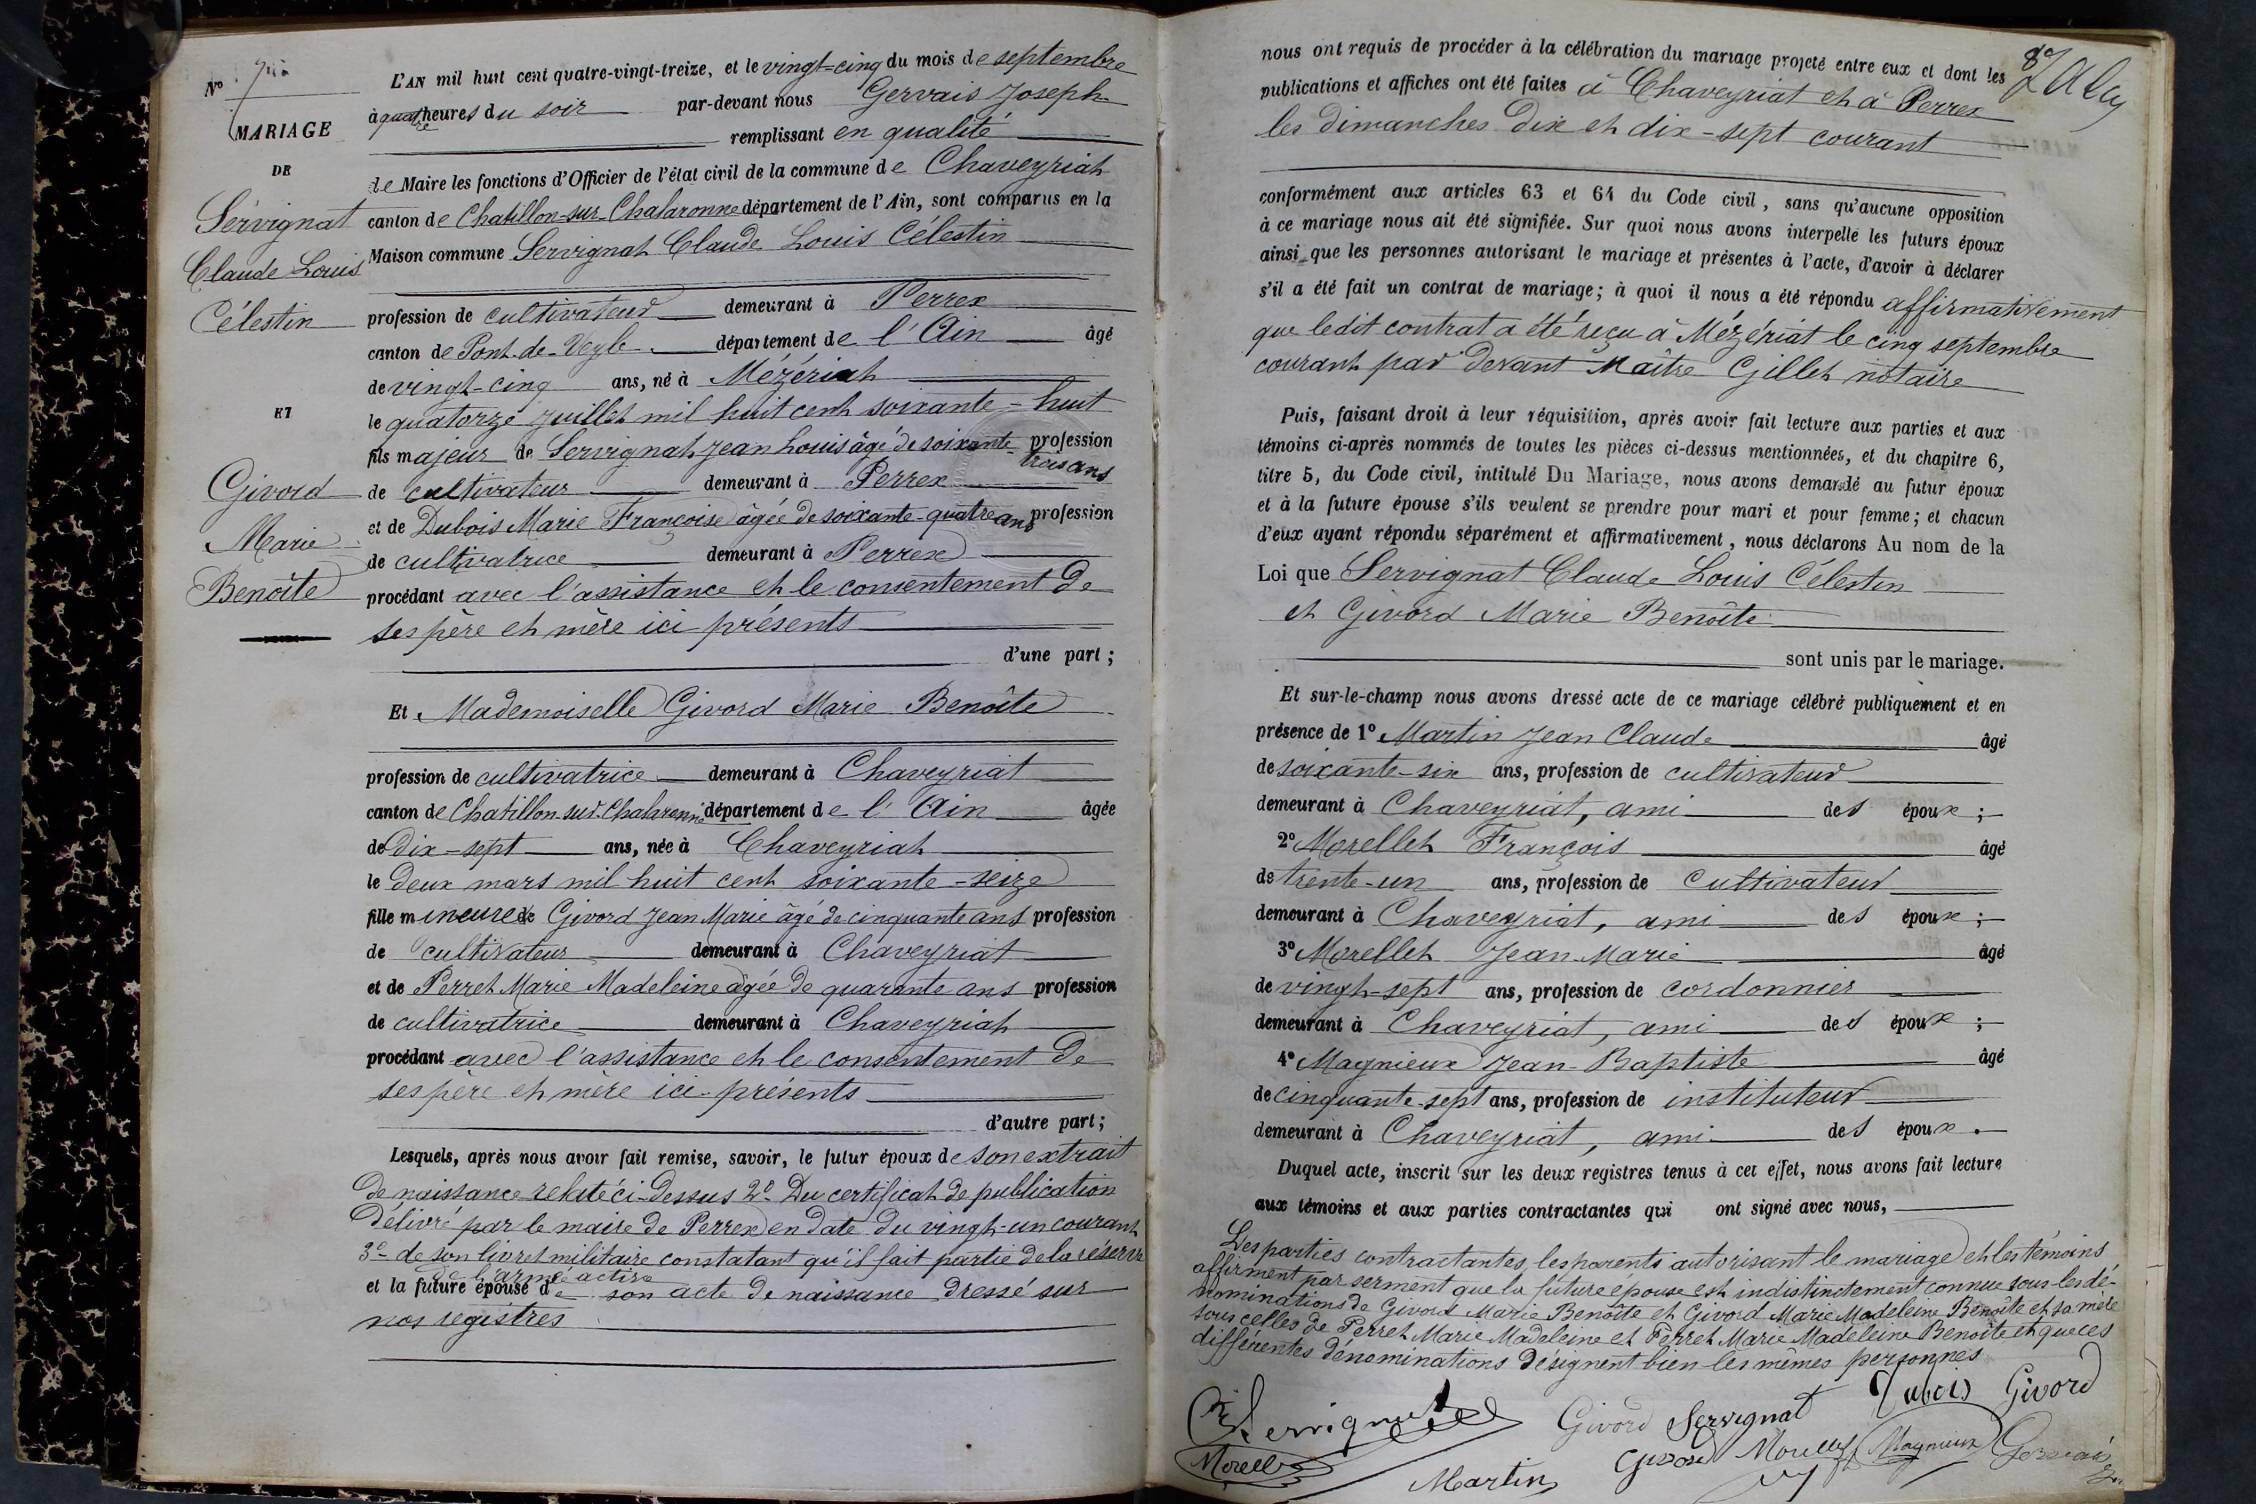 Nº
MARIAGE
DE
Servignat
Claude Louis
Célestin
ET
Givord
Marie
Benoîte
L'AN mil huit cent quatre-vingt-treize, et le vingt-cinq du mois de septembre
à quatre heures du soir par-devant nous Gervais Joseph
remplissant en qualité
de Maire les fonctions d'Officier de l'état civil de la commune de Chaveyriat
canton de Chatillon-sur-Chalaronne département de l'Ain, sont comparus en la
Maison commune Servignat Claude Louis Célestin
profession de cultivateur demeurant à Perrex
canton de Pont-de-Veyle département de l'Ain âgé
de vingt-cinq ans, né à Mézériat
le quatorze juillet mil huit cent soixante-huit
fils majeur de Servignat Jean Louis âgé de soixante-trois ans profession
de cultivateur demeurant à Perrex
et de Dubois Marie Françoise âgée de soixante-quatre ans profession
de cultivatrice demeurant à Perrex
procédant avec l'assistance et le consentement de
ses père et mère ici présents
d'une part ;
Et Mademoiselle Givord Marie Benoîte
profession de cultivatrice demeurant à Chaveyriat
canton de Chatillon-sur-Chalaronne département de l'Ain âgée
de dix-sept ans, née à Chaveyriat
le deux mars mil huit cent soixante-seize
fille mineure de Givord Jean Marie âgé de cinquante ans profession
de cultivateur demeurant à Chaveyriat
et de Perret Marie Madeleine âgée de quarante ans profession
de cultivatrice demeurant à Chaveyriat
procédant avec l'assistance et le consentement de
ses père et mère ici présents
d'autre part ;
Lesquels, après nous avoir fait remise, savoir, le futur époux de son extrait
de naissance relaté ci-dessus 2º Du certificat de publication
délivré par le maire de Perrex en date du vingt-un courant
3º de son livret militaire constatant qu'il fait partie de la réserve
de l'armée active
et la future épouse de son acte de naissance dressé sur
nos registres
87
nous ont requis de procéder à la célébration du mariage projeté entre eux et dont les
publications et affiches ont été faites à Chaveyriat et à Perrex
les dimanches dix et dix-sept courant
conformément aux articles 63 et 64 du Code civil, sans qu'aucune opposition
à ce mariage nous ait été signifiée. Sur quoi nous avons interpellé les futurs époux
ainsi que les personnes autorisant le mariage et présentes à l'acte, d'avoir à déclarer
s'il a été fait un contrat de mariage ; à quoi il nous a été répondu affirmativement
que ledit contrat a été reçu à Mézériat le cinq septembre
courant par devant Maître Gillet notaire
Puis, faisant droit à leur réquisition, après avoir fait lecture aux parties et aux
témoins ci-après nommés de toutes les pièces ci-dessus mentionnées, et du chapitre 6,
titre 5, du Code civil, intitulé Du Mariage, nous avons demandé au futur époux
et à la future épouse s'ils veulent se prendre pour mari et pour femme ; et chacun
d'eux ayant répondu séparément et affirmativement, nous déclarons Au nom de la
Loi que Servignat Claude Louis Célestin
et Givord Marie Benoîte
sont unis par le mariage.
Et sur-le-champ nous avons dressé acte de ce mariage célébré publiquement et en
présence de 1º Martin Jean Claude âgé
de soixante-six ans, profession de cultivateur
demeurant à Chaveyriat, ami des époux ;
2º Morellet François âgé
de trente-un ans, profession de cultivateur
demeurant à Chaveyriat, ami des époux ;
3º Morellet Jean-Marie âgé
de vingt-sept ans, profession de cordonnier
demeurant à Chaveyriat, ami des époux ;
4º Magnieux Jean-Baptiste âgé
de cinquante-sept ans, profession de instituteur
demeurant à Chaveyriat, ami des époux.
Duquel acte, inscrit sur les deux registres tenus à cet effet, nous avons fait lecture
aux témoins et aux parties contractantes qui ont signé avec nous,
Les parties contractantes, les parents autorisant le mariage et les témoins
affirment par serment que la future épouse est indistinctement connue sous les dé-
nominations de Givord Marie Benoîte et Givord Marie Madeleine Benoîte et sa mère
sous celles de Perret Marie Madeleine et Perret Marie Madeleine Benoîte et que ces
différentes dénominations désignent bien les mêmes personnes
Servignat Givord Servignat Dubois Givord
Morellet Martin Givord Morellet Magnieux Gervais